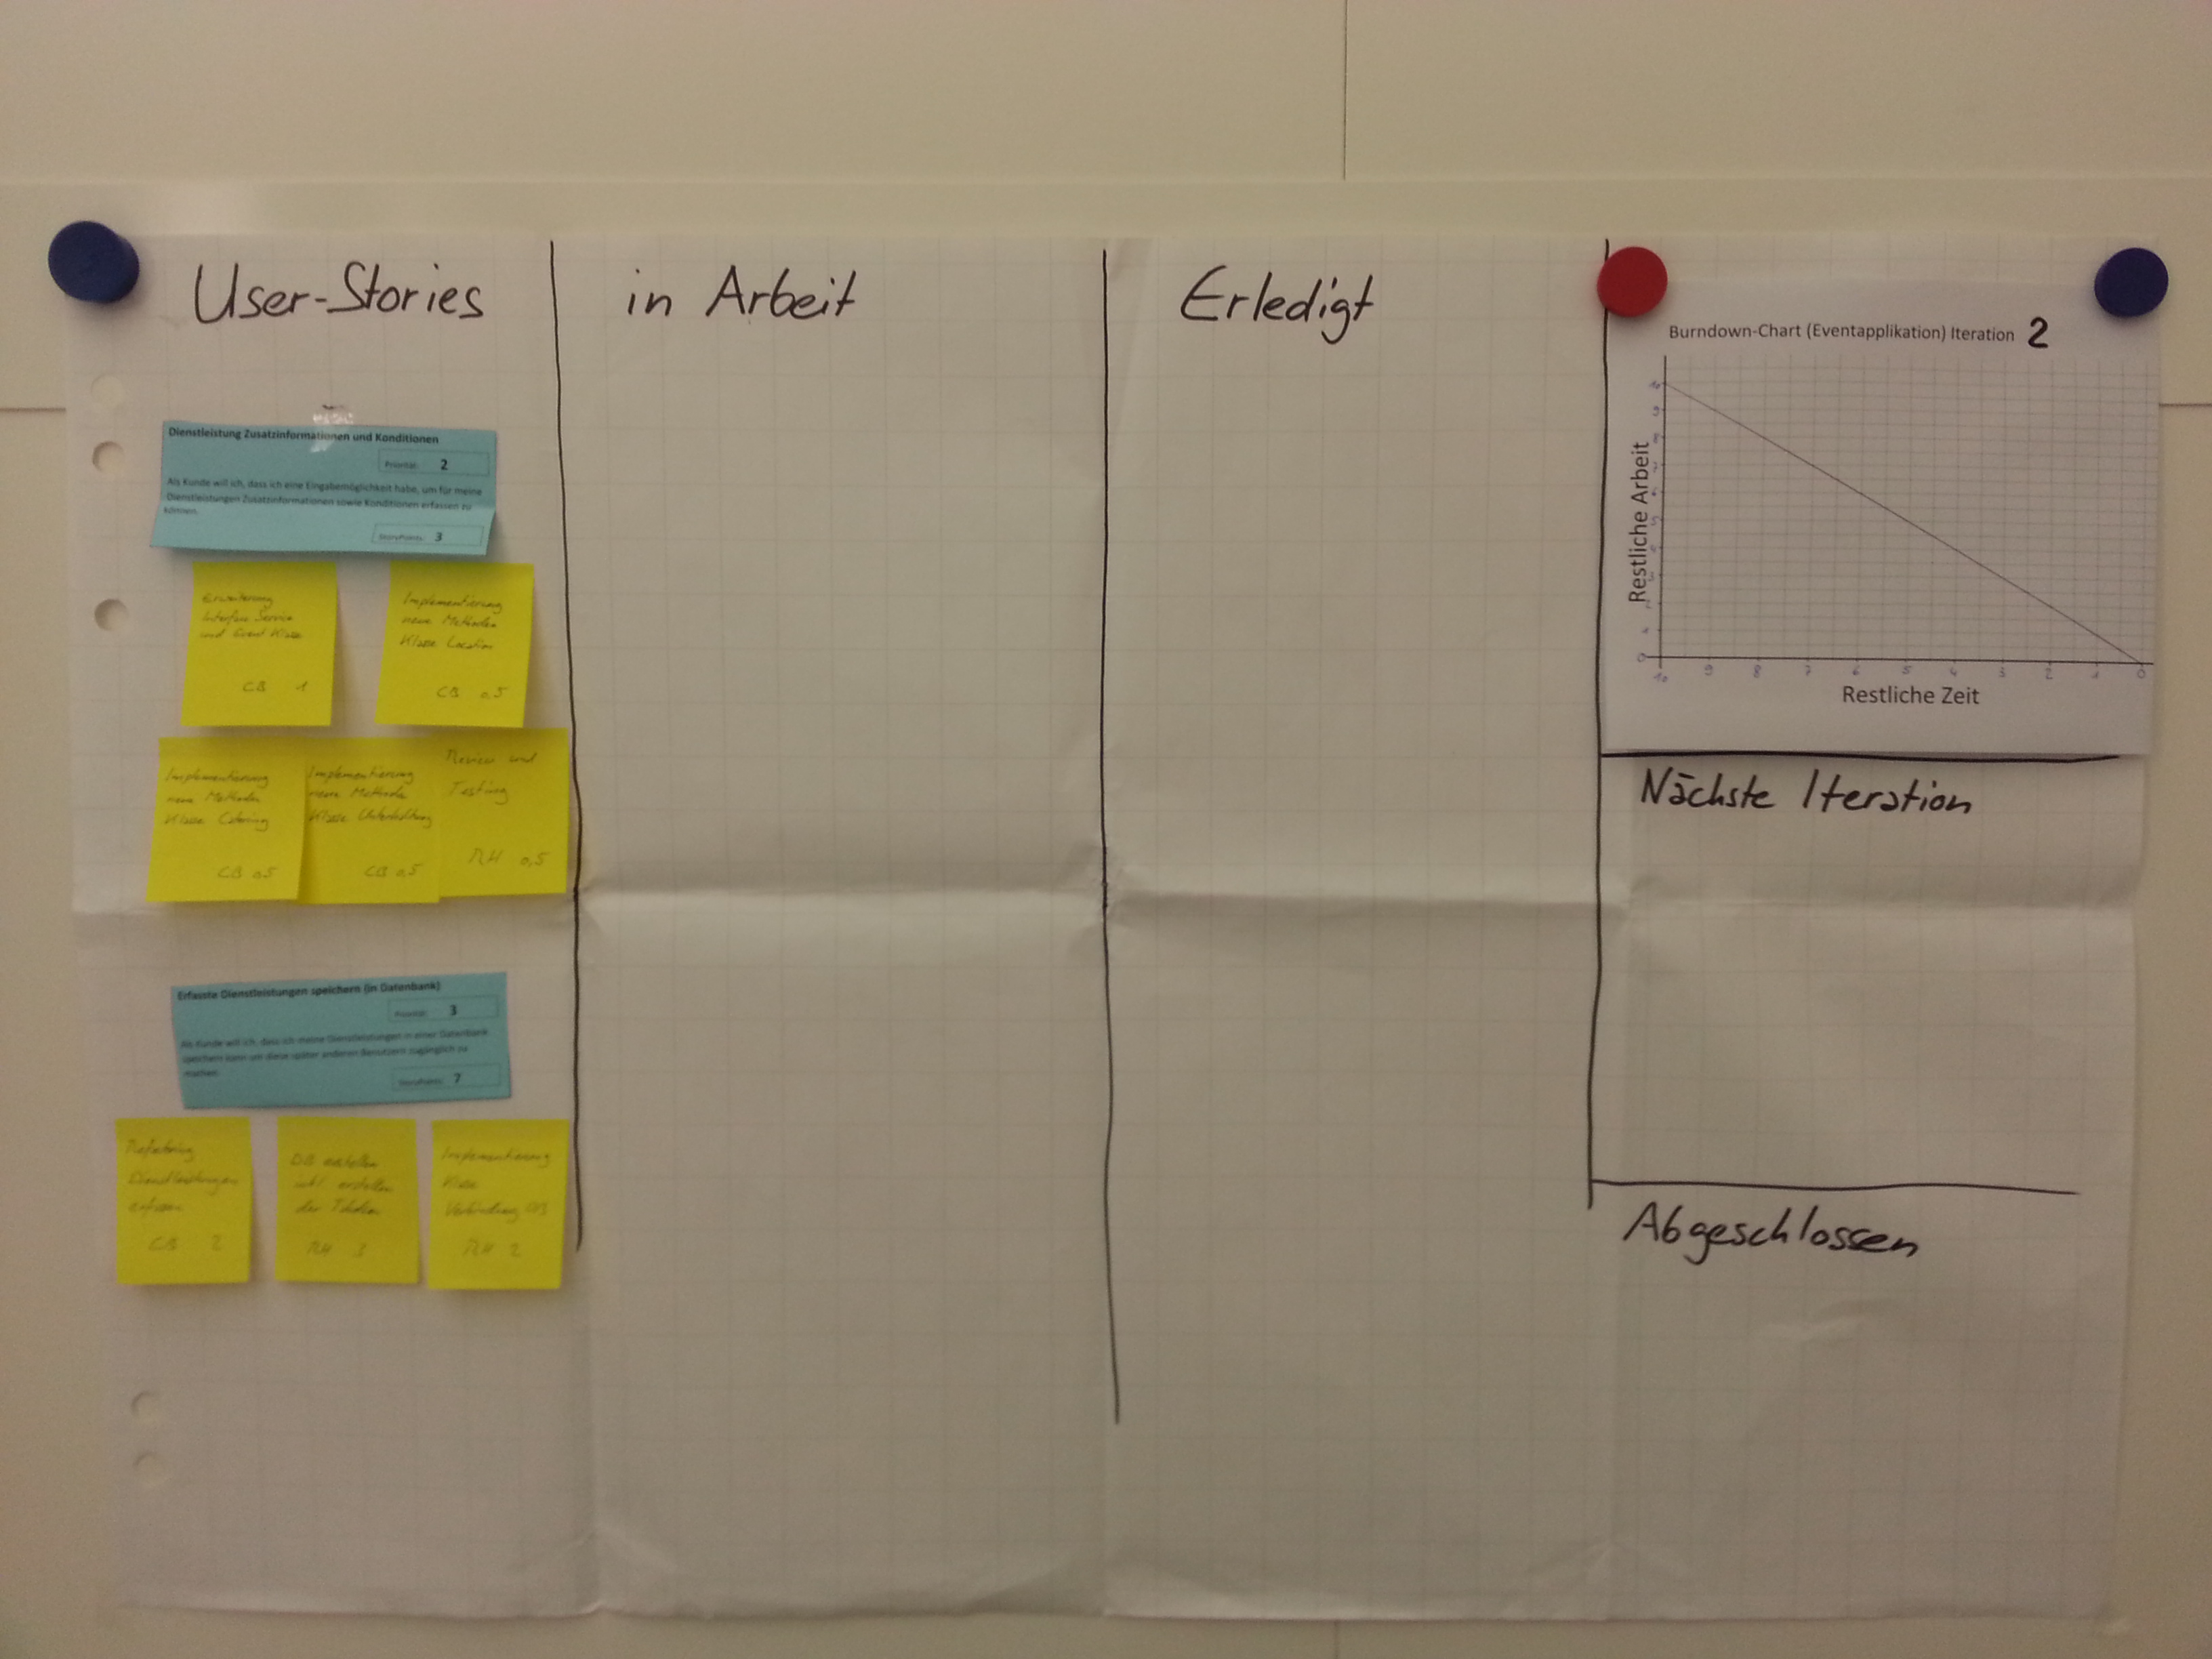 User-Stories
Dienstleistung Zusatzinformationen und Konditionen
Priorität: 2
Als Kunde will ich, dass ich eine Eingabemöglichkeit habe, um für meine
Dienstleistungen Zusatzinformationen sowie Konditionen erfassen zu
können.
StoryPoints: 3
Erweiterung
Interface Service
und Event Klasse
CB 1
Implementierung
neue Methoden
Klasse Location
CB 0.5
Implementierung
neue Methoden
Klasse Catering
CB 0.5
Implementierung
neue Methoden
Klasse Unterhaltung
CB 0,5
Review und
Testing
RH 0,5
Erfasste Dienstleistungen speichern (in Datenbank)
Priorität: 3
Als Kunde will ich, dass ich meine Dienstleistungen in einer Datenbank
speichern kann um diese später anderen Benutzern zugänglich zu
machen.
StoryPoints: 7
Dienstleistungen
erfassen
CB 2
DB erstellen
inkl. erstellen
der Tabellen
RH 3
Implementierung
Klasse
Verbindung DB
RH 2
in Arbeit
Erledigt
Burndown-Chart (Eventapplikation) Iteration 2
Restliche Arbeit
10
9
8
7
6
5
4
3
2
1
0
10 9 8 7 6 5 4 3 2 1 0
Restliche Zeit
Nächste Iteration
Abgeschlossen